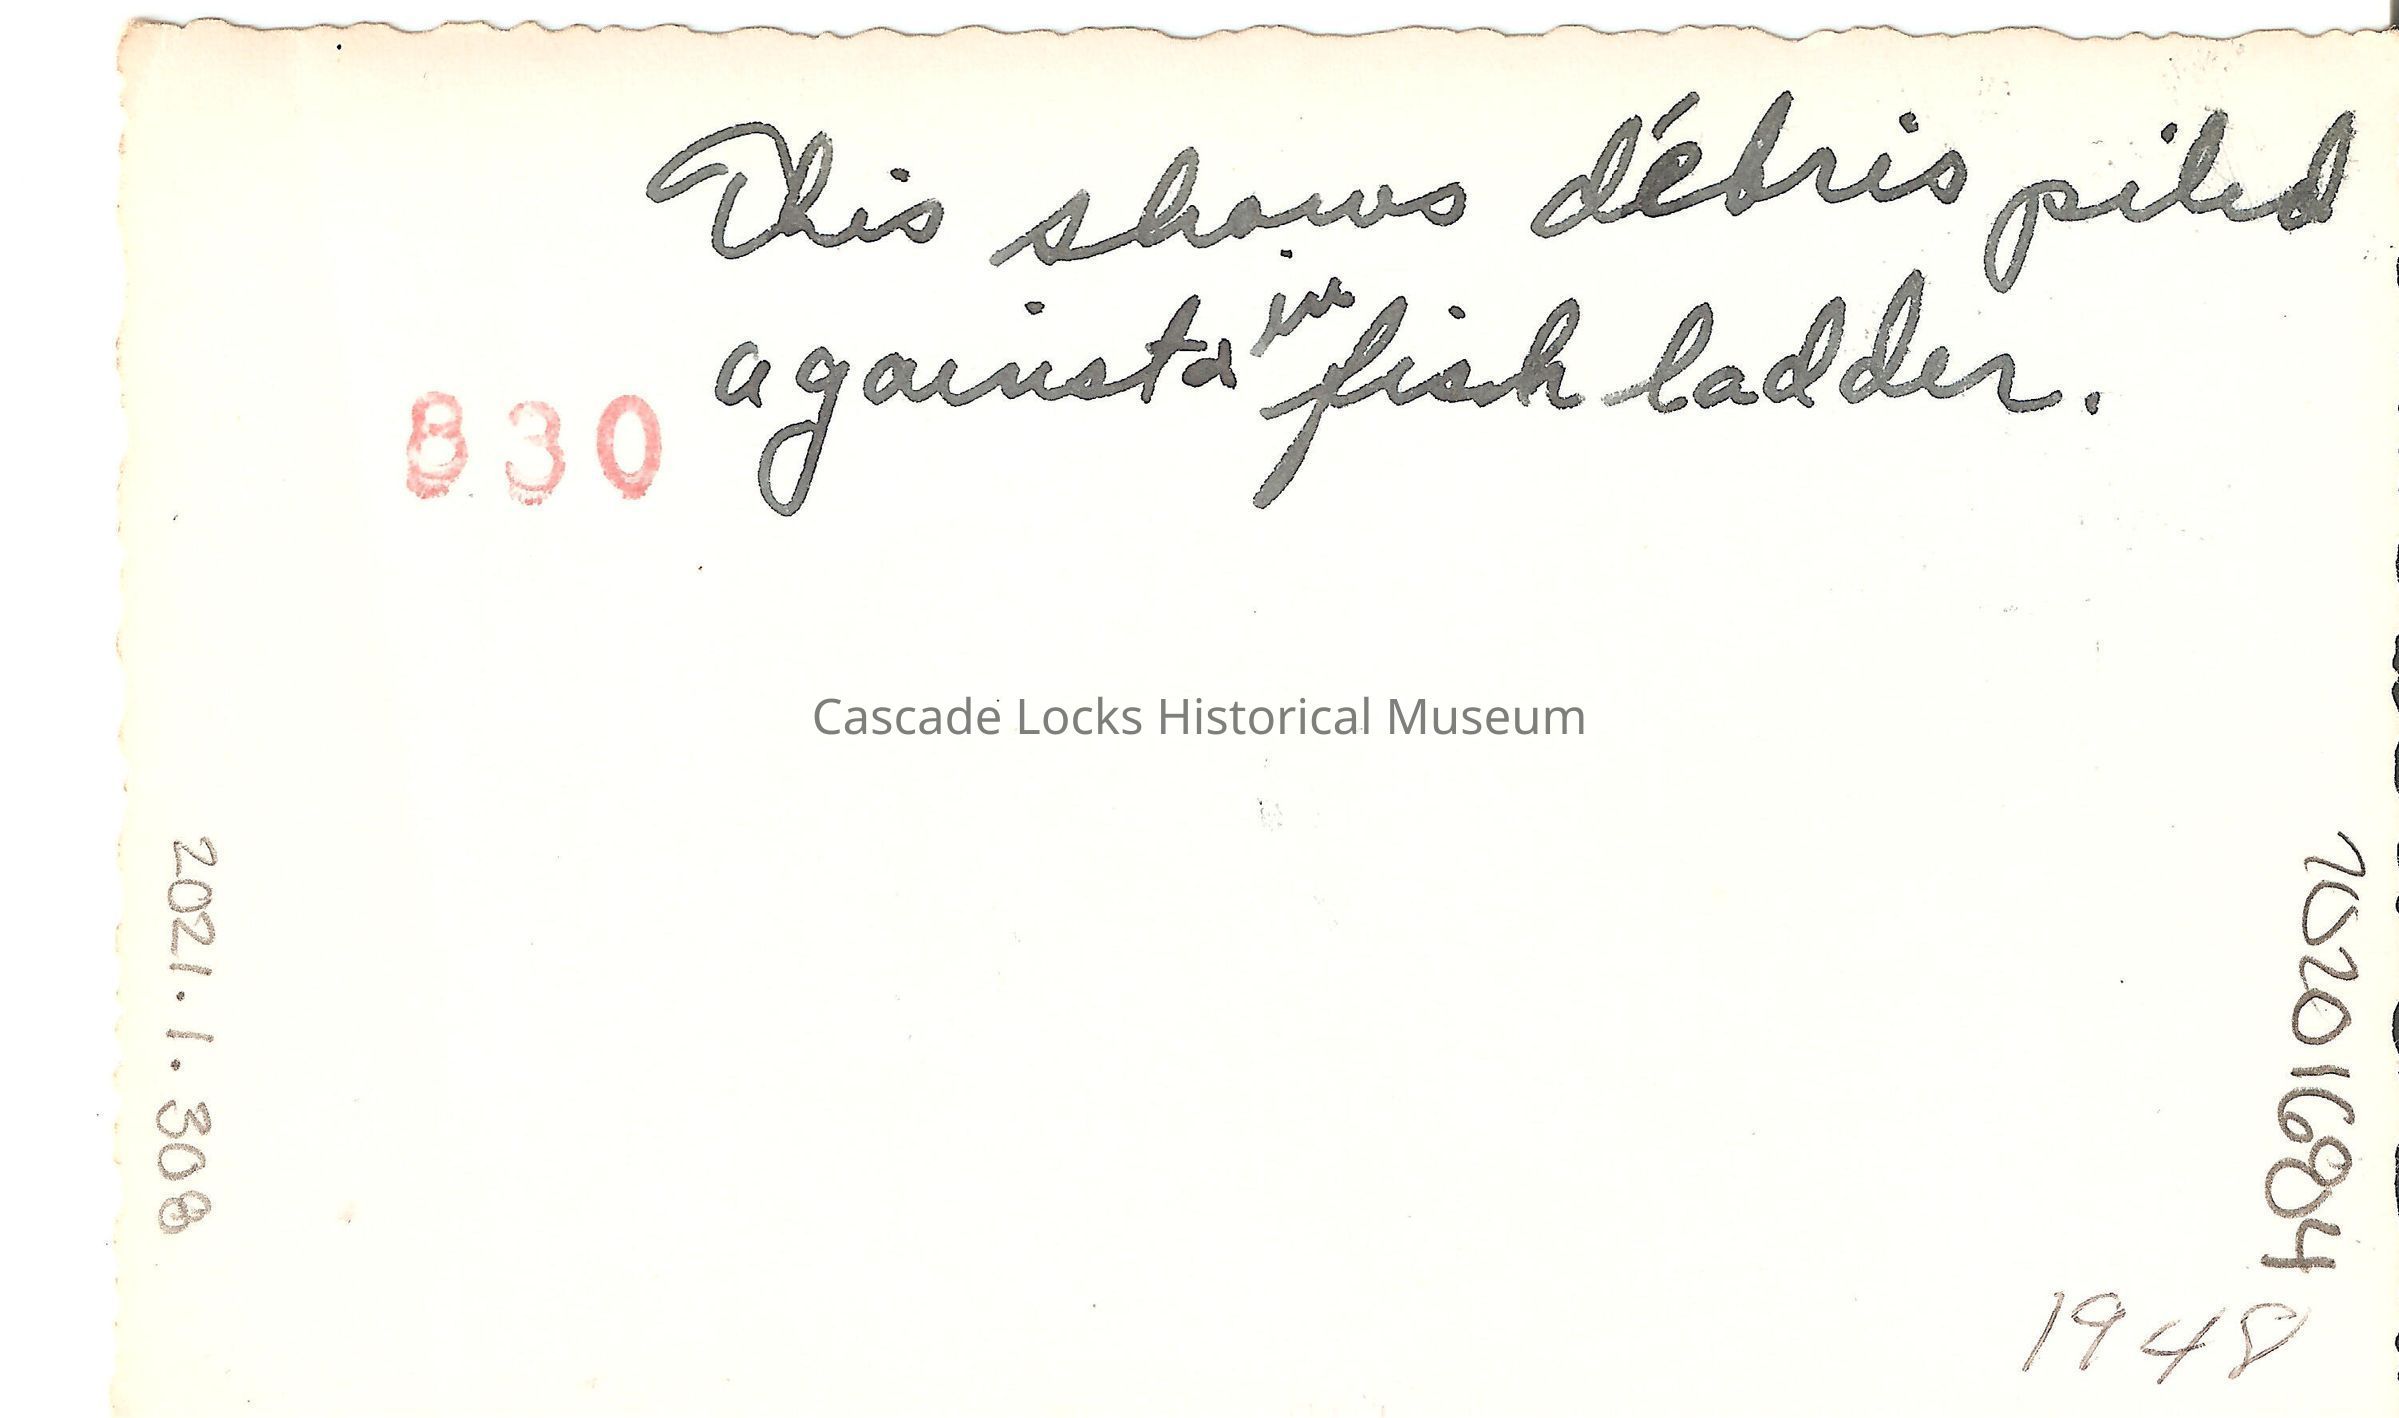 This shows débris piled
against & in fish ladder.
830
Cascade Locks Historical Museum
2021.1.308
1948